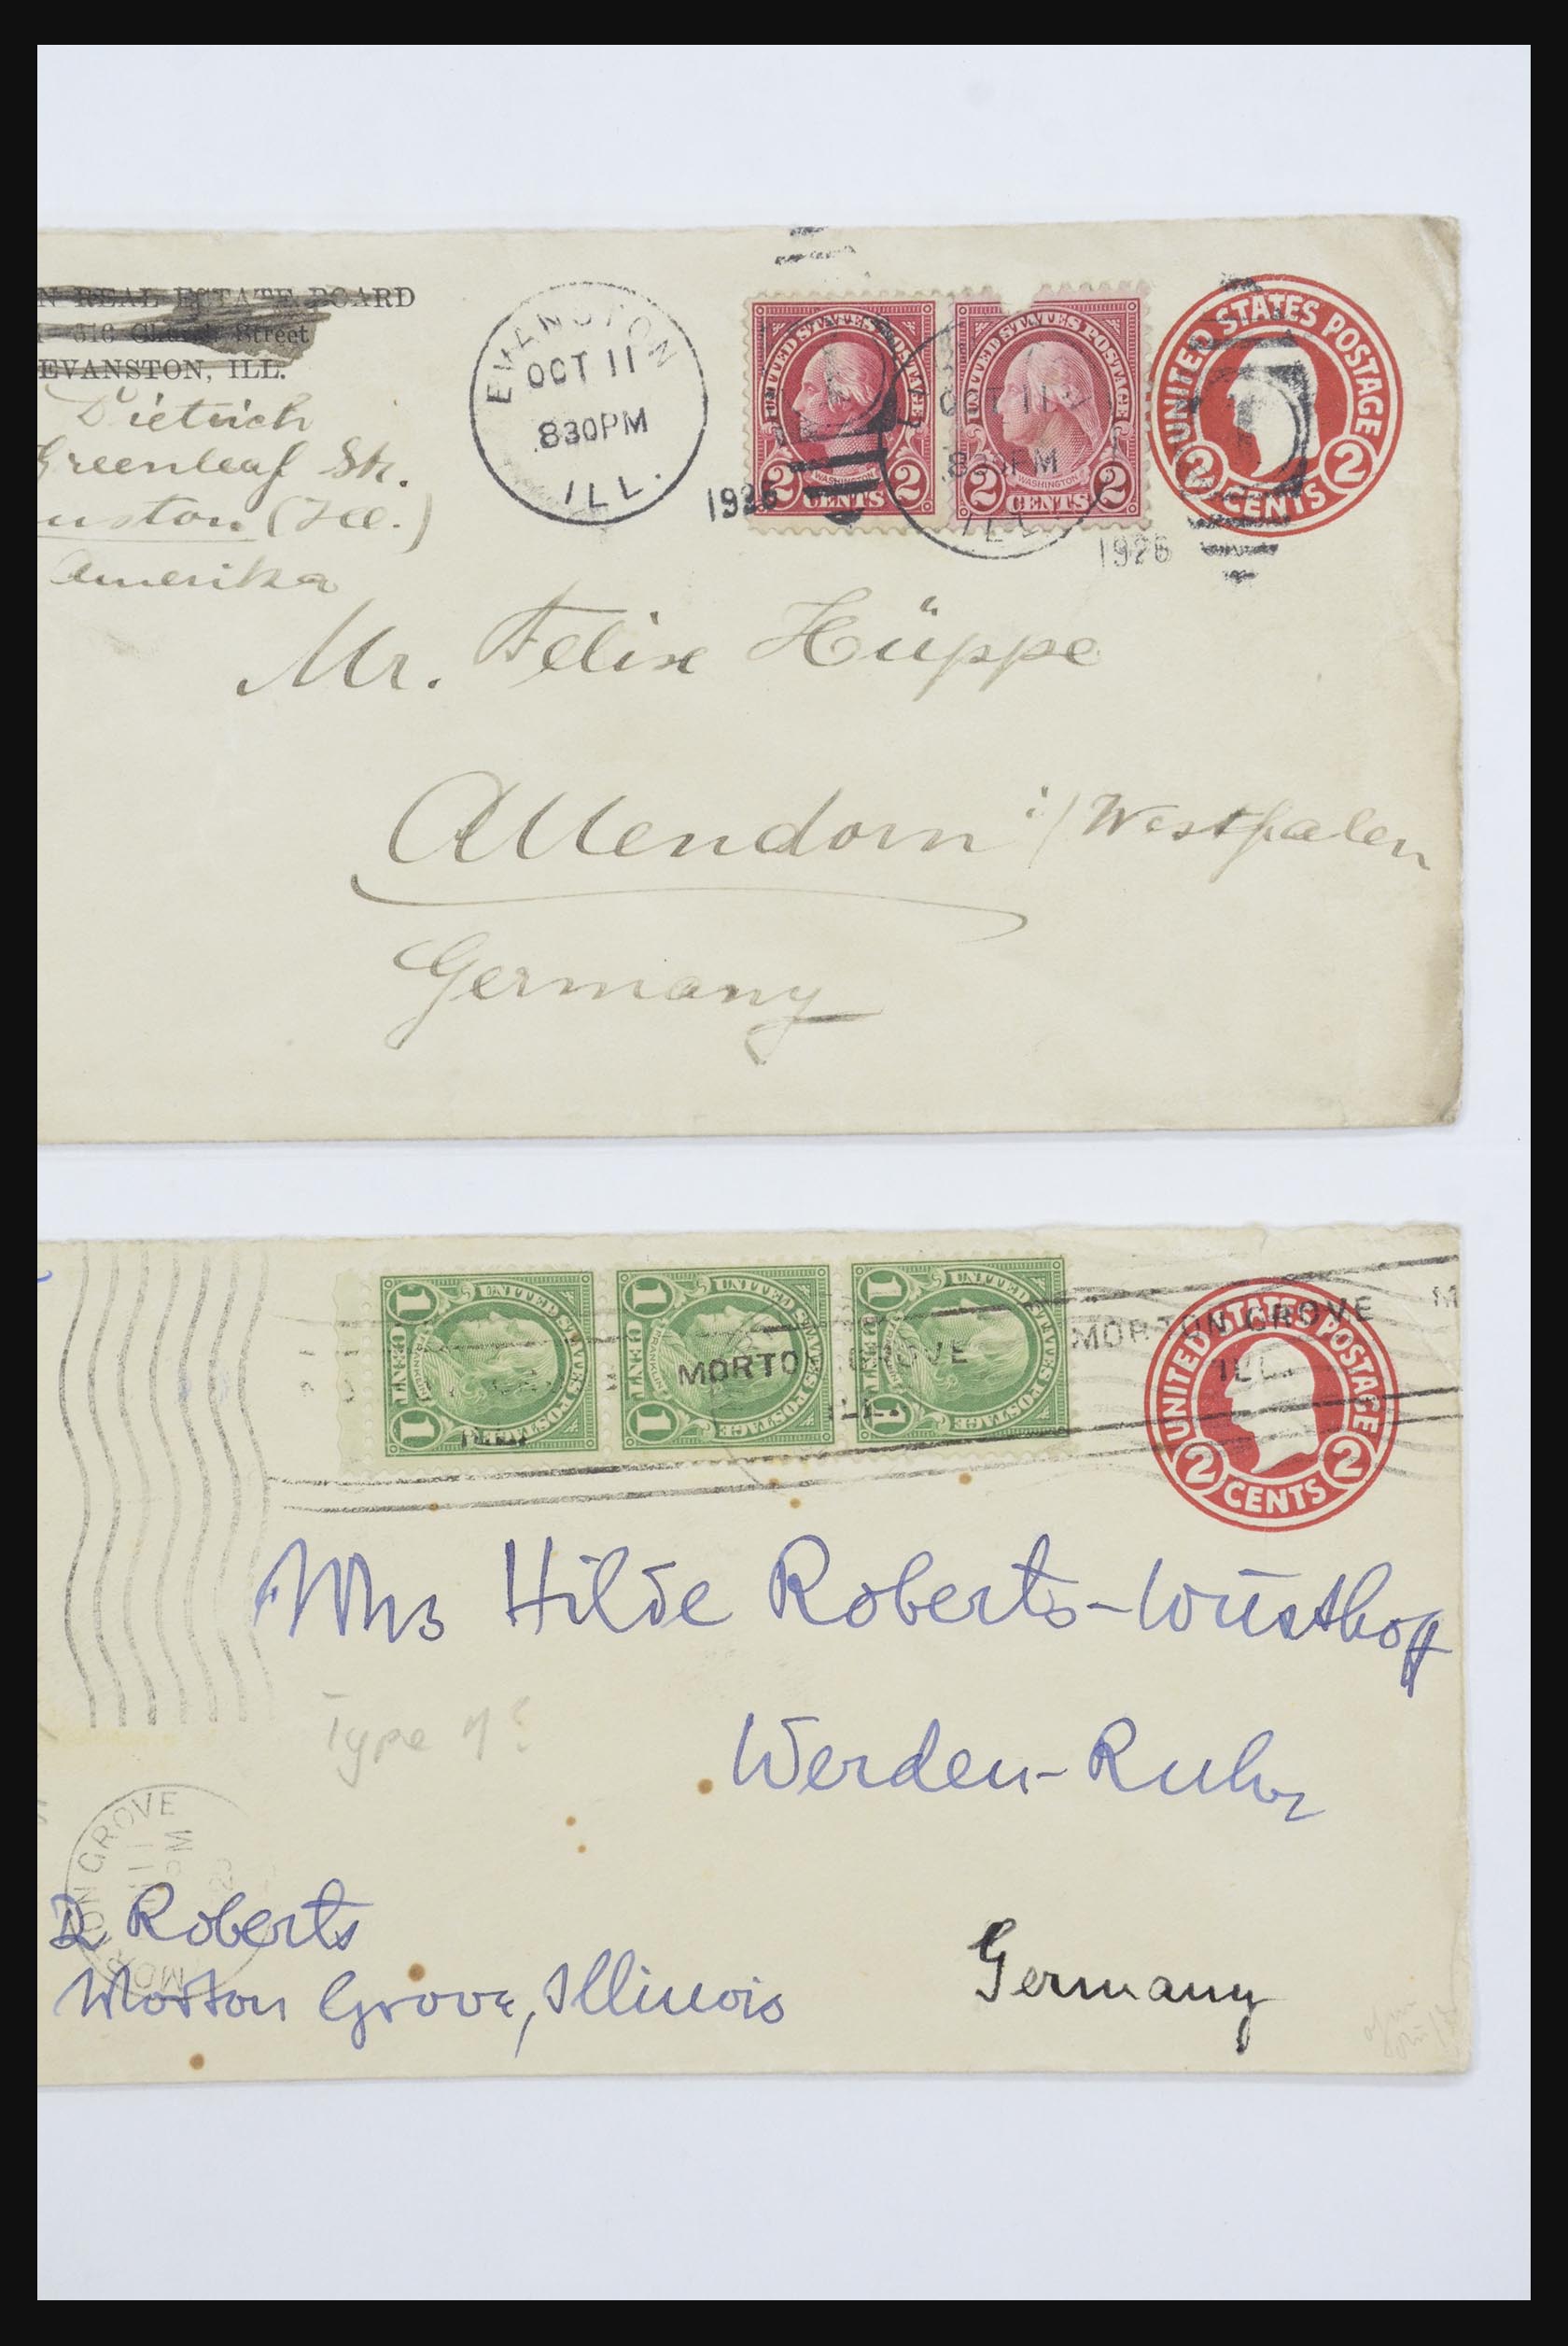 N REAL ESTATE BOARD
616 Church Street
EVANSTON, ILL.
Dietrich
Greenleaf Str.
nston (Ill.)
Amerika
EVANSTON
OCT 11
830PM
ILL.
1926
UNITED STATES POSTAGE
WASHINGTON
2 CENTS 2
UNITED STATES POSTAGE
WASHINGTON
2 CENTS 2
OCT 11
830PM
ILL.
1926
UNITED STATES POSTAGE
2 CENTS 2
Mr. Felix Hüppe
Attendorn i/Westfalen
Germany
UNITED STATES POSTAGE
FRANKLIN
1 CENT 1
UNITED STATES POSTAGE
FRANKLIN
1 CENT 1
UNITED STATES POSTAGE
1 CENT 1
MORTO GROVE
ILL.
MORTON GROVE
ILL.
M
UNITED STATES POSTAGE
2 CENTS 2
Mrs Hilde Roberts-Wüsthof
Type
Werden-Ruhr
MORTON GROVE
D Roberts
Morton Grove, Illinois
Germany